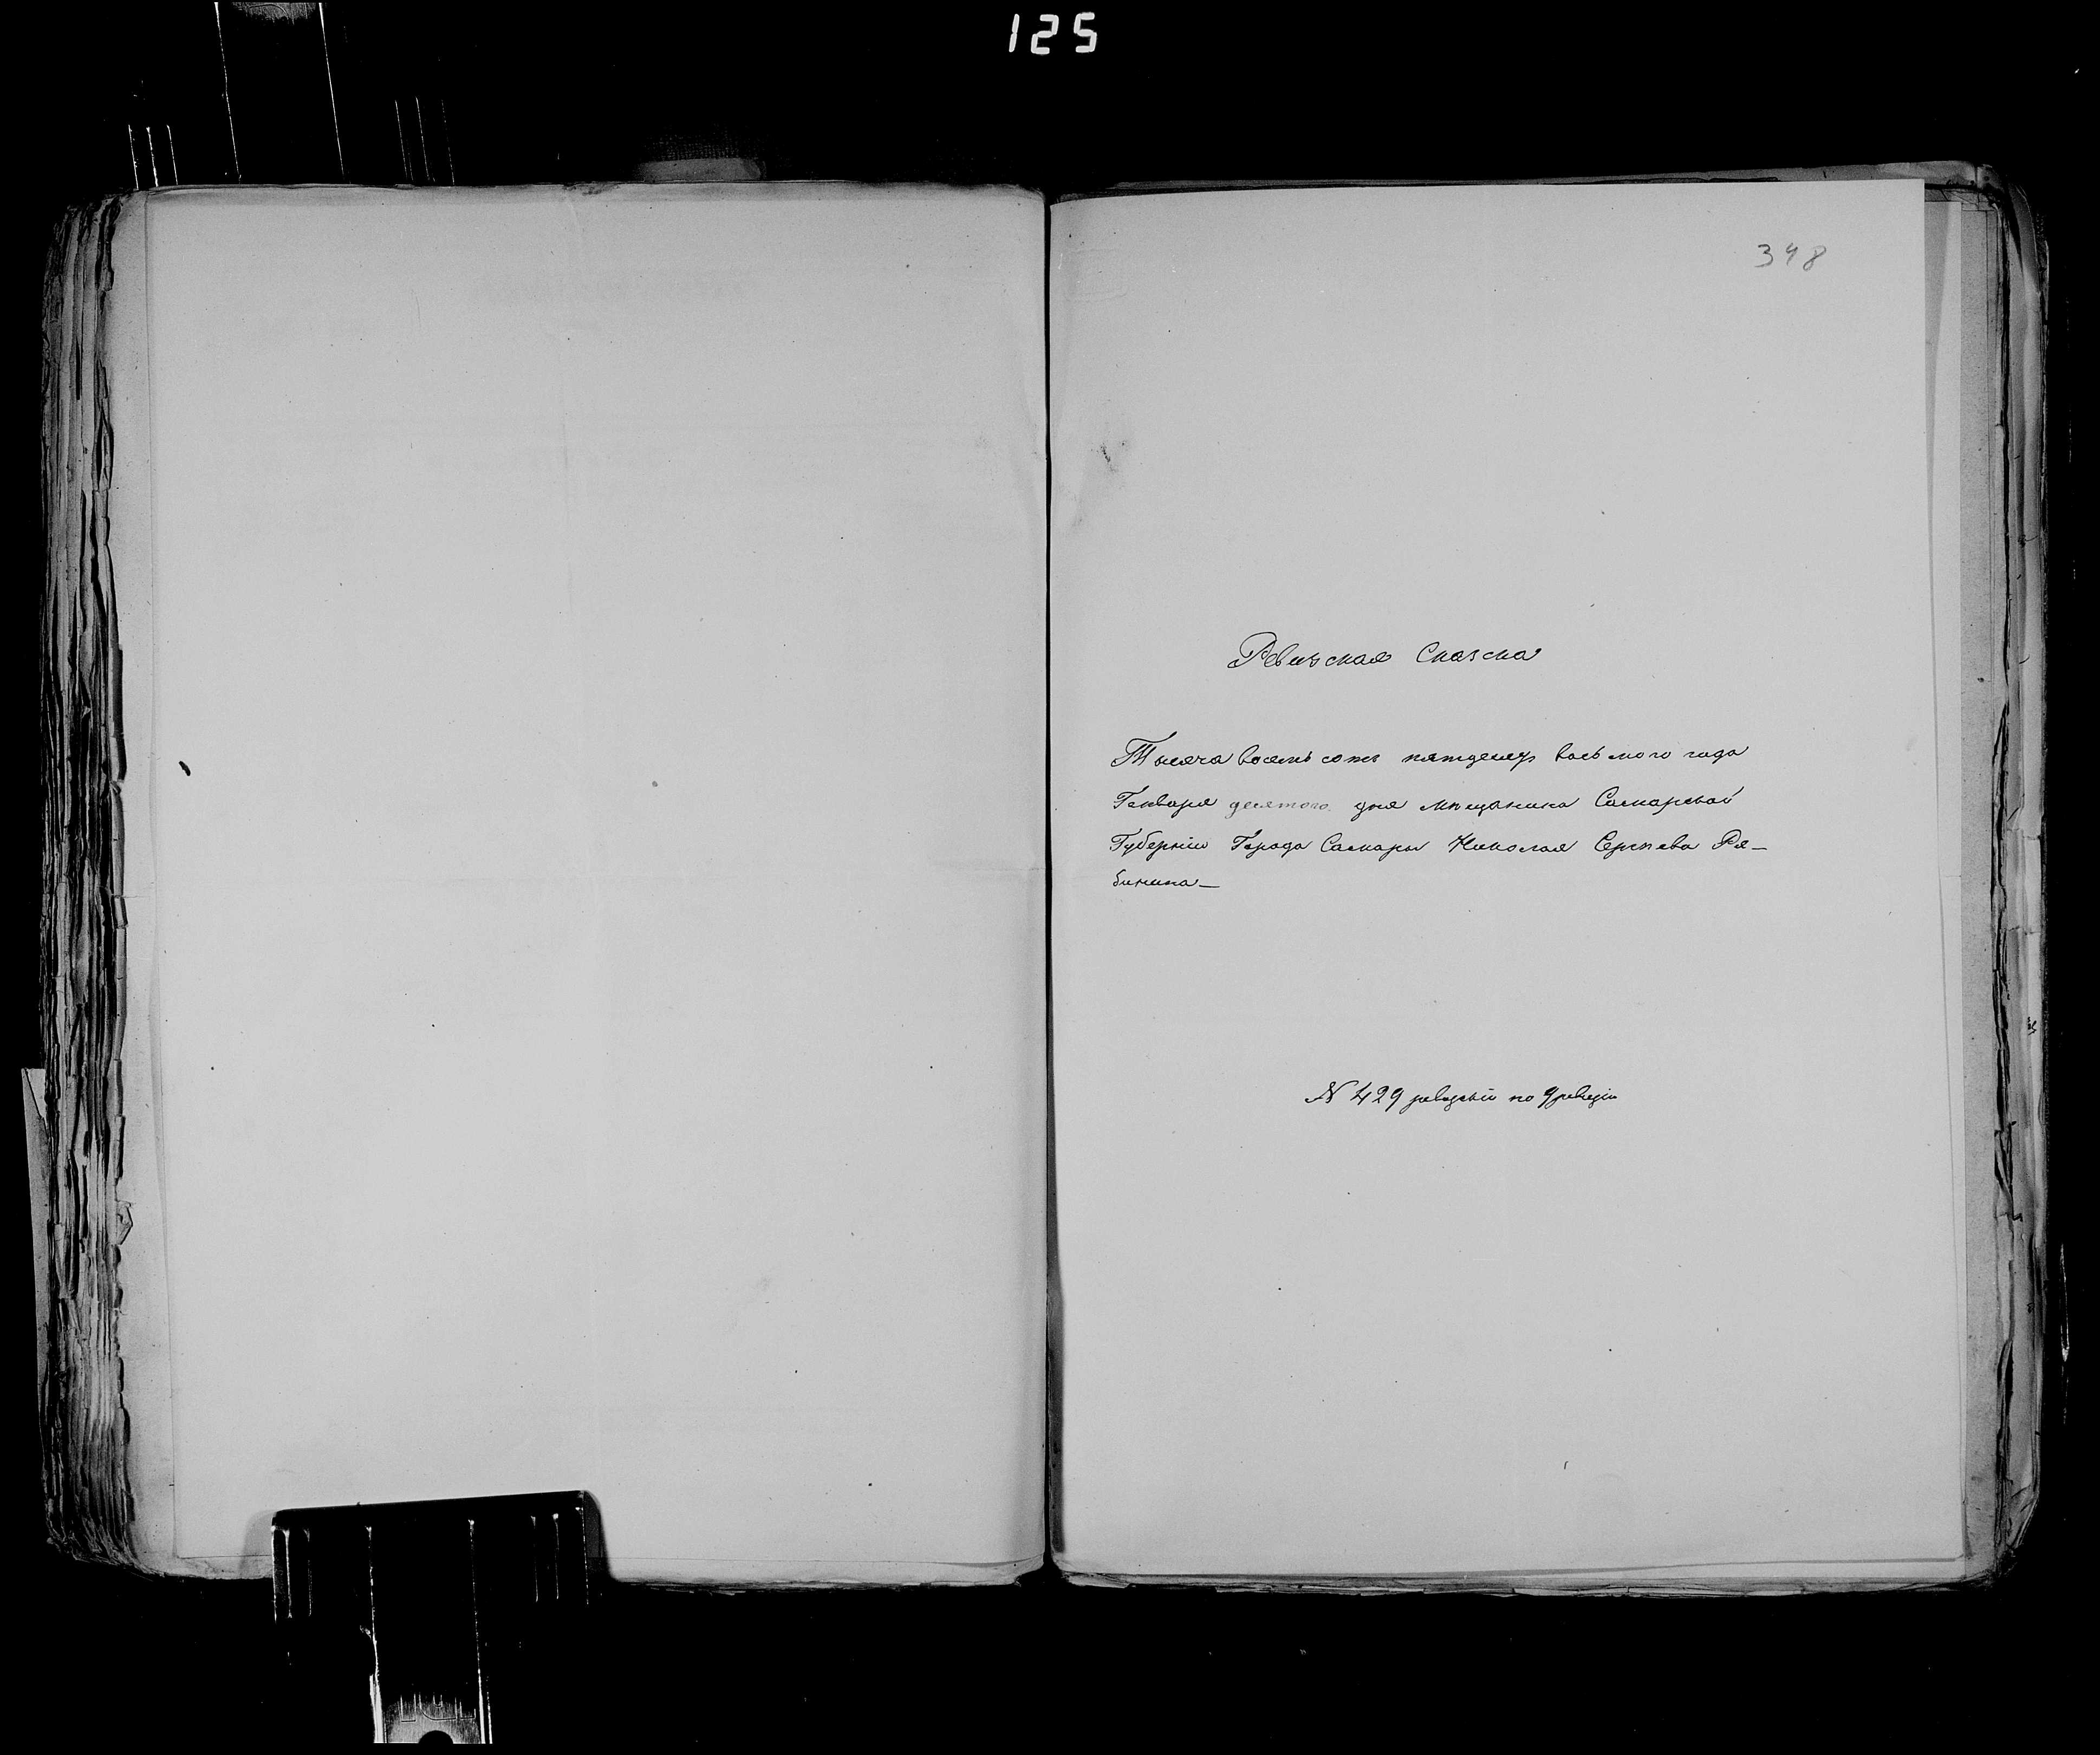 125
348
Ревизская Сказка
Тысяча восемь сотъ пятдесят восьмого года
Генваря десятого дня мѣщанина Самарской
Губерніи Города Самары Николая Сергѣева Ря-
бинина—
№ 429 ревизскій по 9 ревизіи